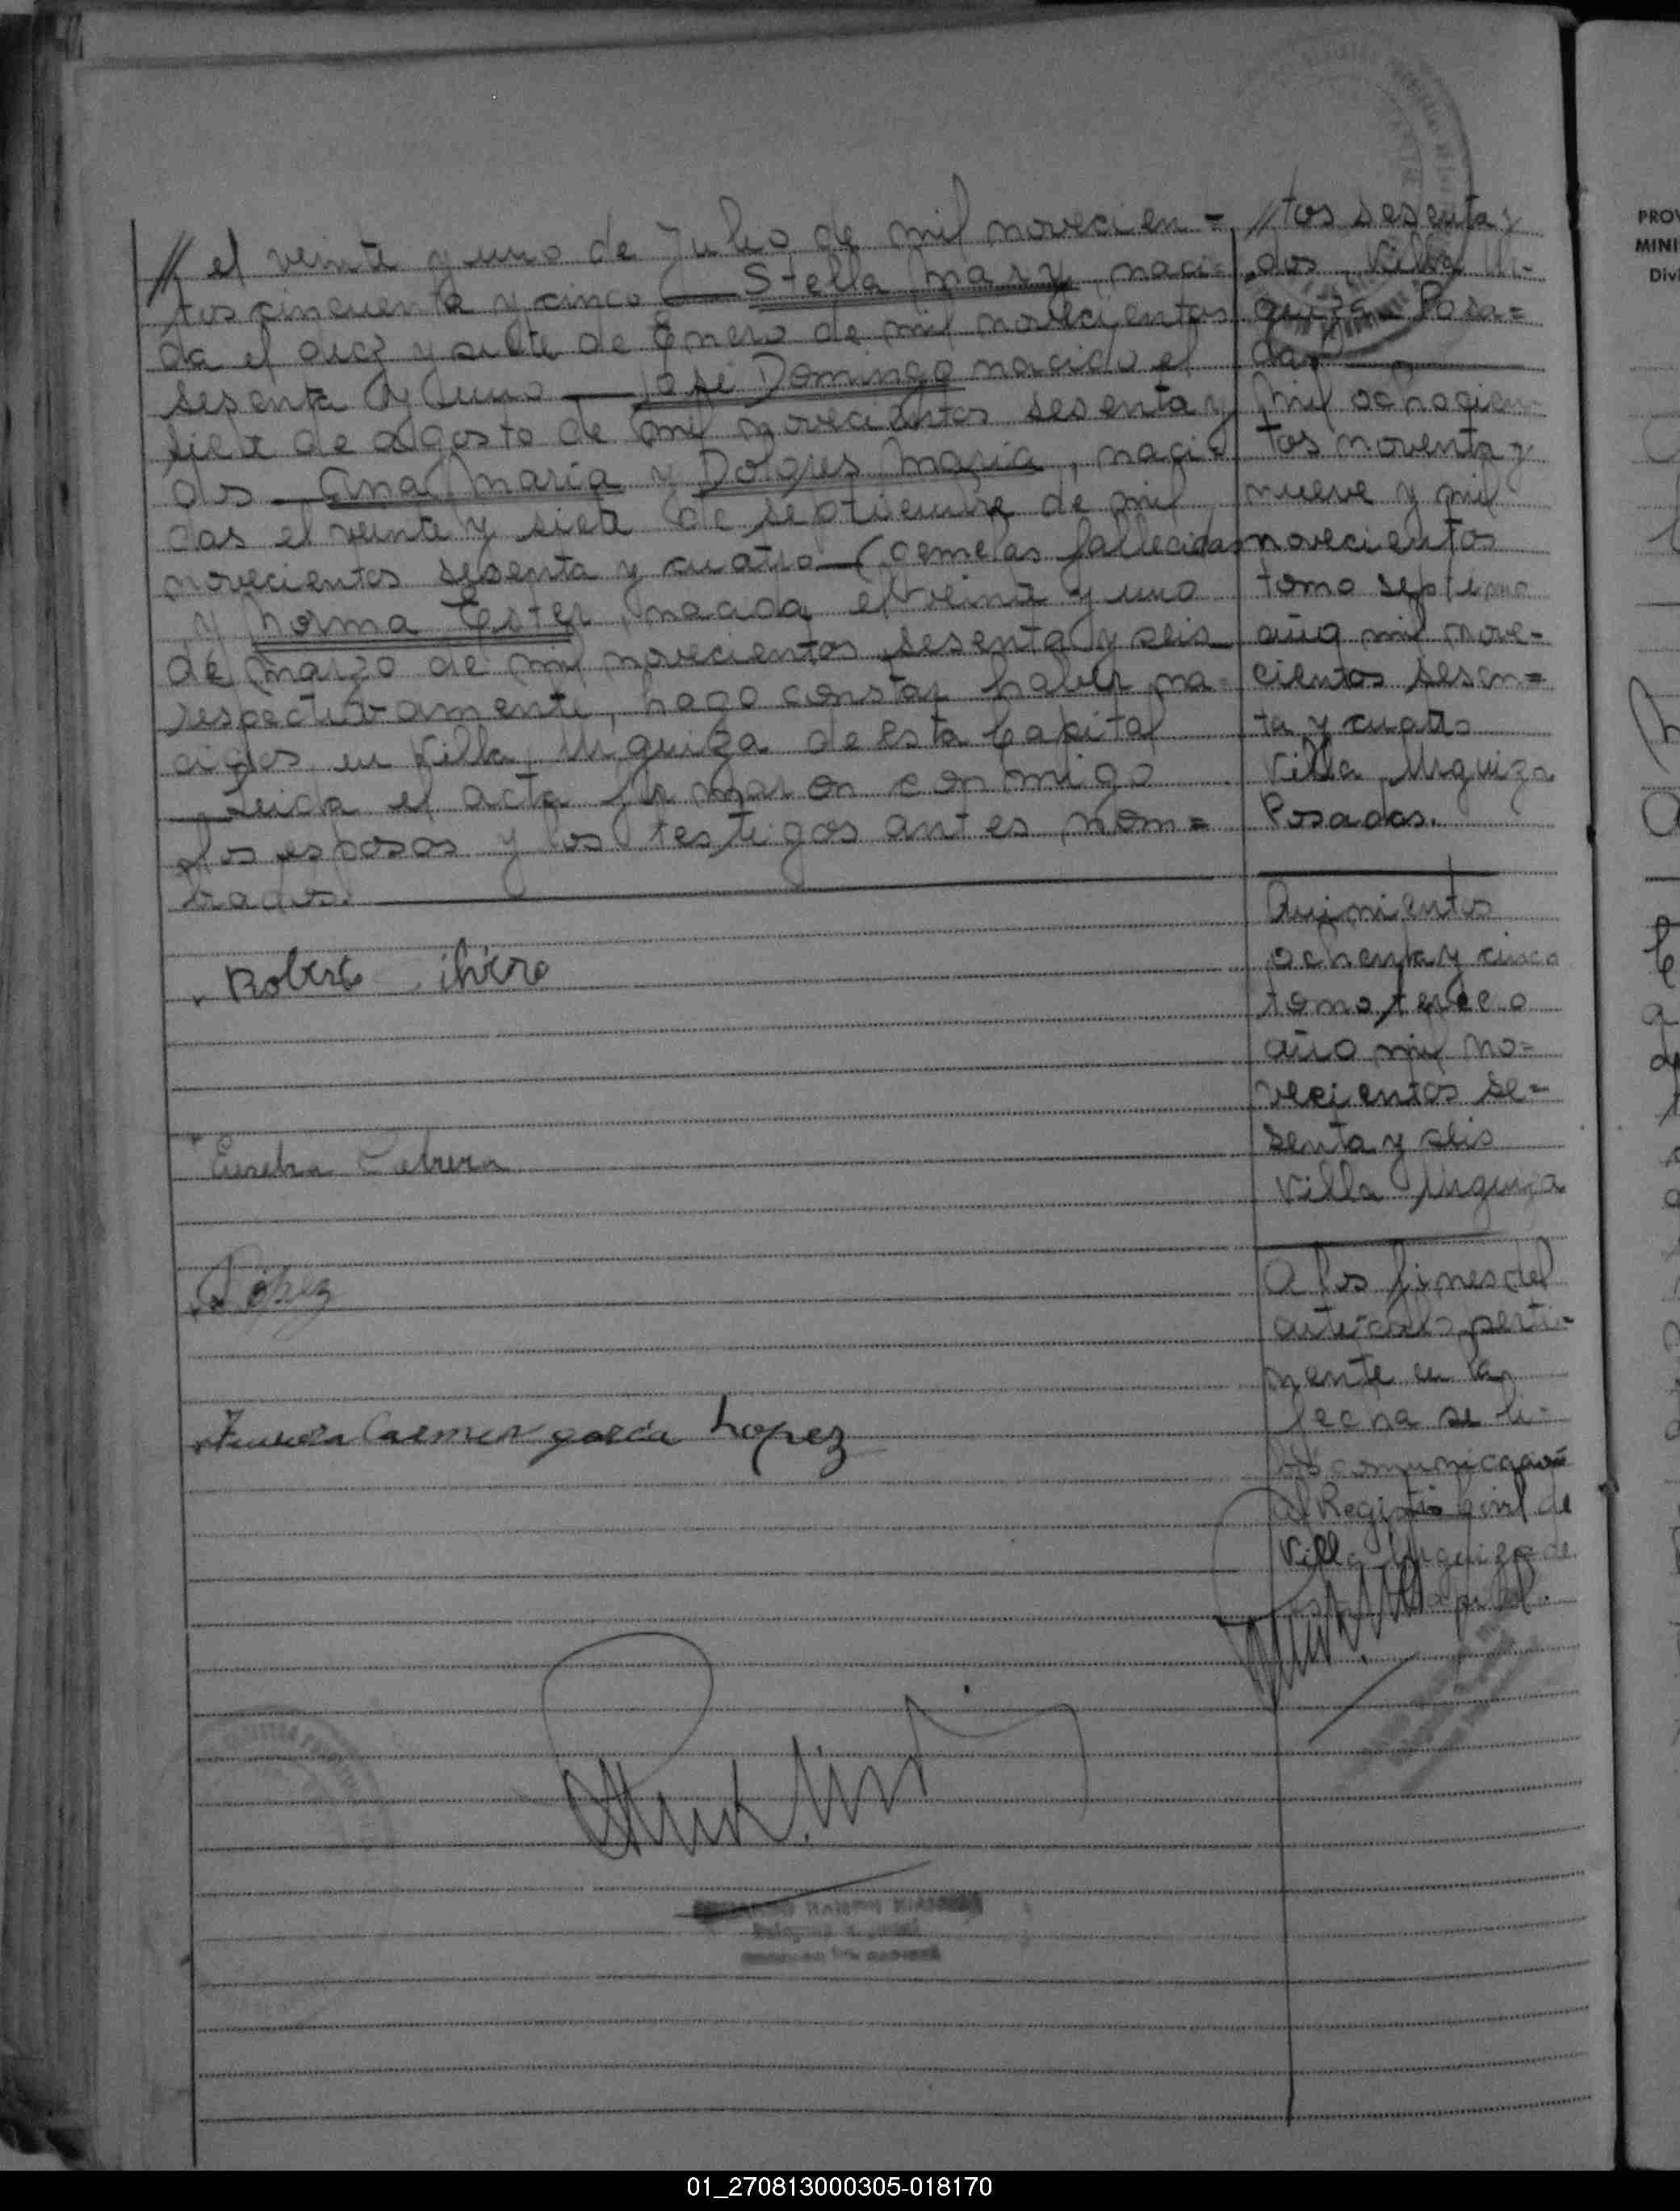 // el veinte y uno de Julio de mil novecien=
tos cincuenta y cinco — Stella Mary, naci
da el diez y siete de Enero de mil novecientos
sesenta y uno — José Domingo nacido el
siete de agosto de mil novecientos sesenta y
dos — Ana María y Dolores María, naci
das el veinte y siete de septiembre de mil
novecientos sesenta y cuatro — (gemelas fallecidas
y Norma Ester, nacida el veinte y uno
de marzo de mil novecientos sesenta y seis
respectivamente, hago constar haber na=
cidos en Villa Urquiza de esta Capital
— Leida el acta firmaron conmigo
los esposos y los testigos antes nom=
brados.
Cabrera
López
Carmen García Lopez
// tos sesenta y
dos, Villa Ur-
quiza Posa=
das
Mil ochocien-
tos noventa y
nueve y mil
novecientos
tomo septimo
año mil nove-
cientos sesen=
ta y cuatro
Villa Urquiza
Posadas.
Quinientos
ochenta y cinco
tomo tercero
año mil no=
vecientos se=
senta y seis
Villa Urquiza
A los fines del
articulo perti-
nente en la
fecha se li-
bró comunicación
al Registro Civil de
Villa Urquiza de
Capital.
PROV
MINI
Div
01_270813000305-018170